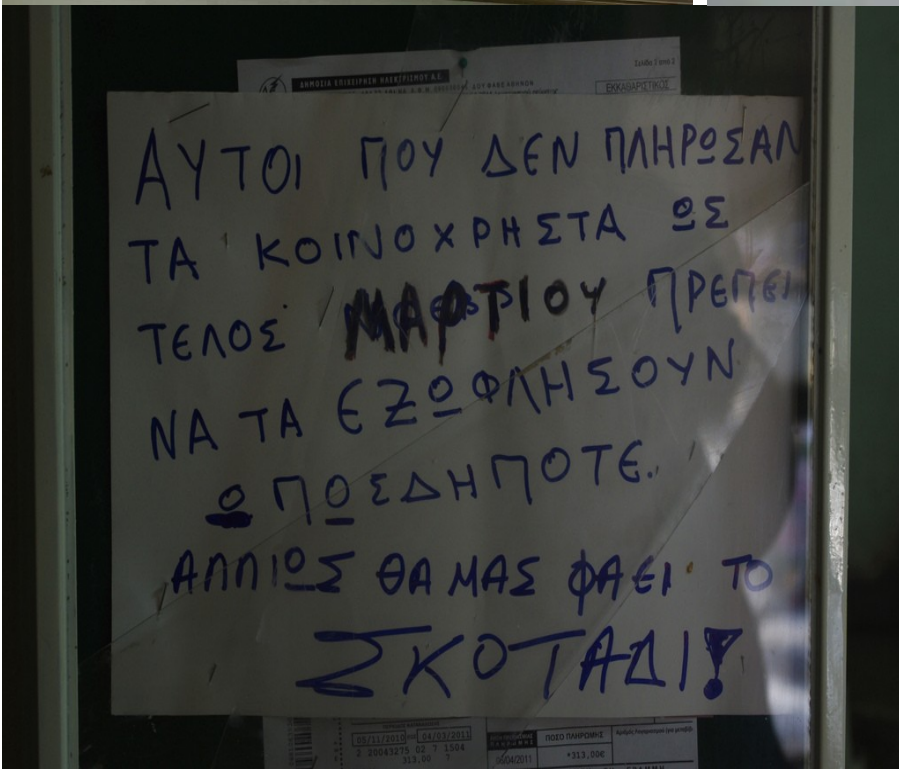 Σελίδα 1 από 2
ΔΗΜΟΣΙΑ ΕΠΙΧΕΙΡΗΣΗ ΗΛΕΚΤΡΙΣΜΟΥ Α.Ε.
ΕΚΚΑΘΑΡΙΣΤΙΚΟΣ
ΑΥΤΟΙ ΠΟΥ ΔΕΝ ΠΛΗΡΩΣΑΝ
ΤΑ ΚΟΙΝΟΧΡΗΣΤΑ ΩΣ
ΤΕΛΟΣ ΜΑΡΤΙΟΥ ΠΡΕΠΕΙ
ΝΑ ΤΑ ΕΞΩΦΛΗΣΟΥΝ
ΩΠΩΣΔΗΠΟΤΕ.
ΑΛΛΙΩΣ ΘΑ ΜΑΣ ΦΑΕΙ ΤΟ
ΣΚΟΤΑΔΙ!
05/11/2010 04/03/2011
ΠΟΣΟ ΠΛΗΡΩΜΗΣ
2 20043275 02 7 1504
313,00
06/04/2011
*313,00€